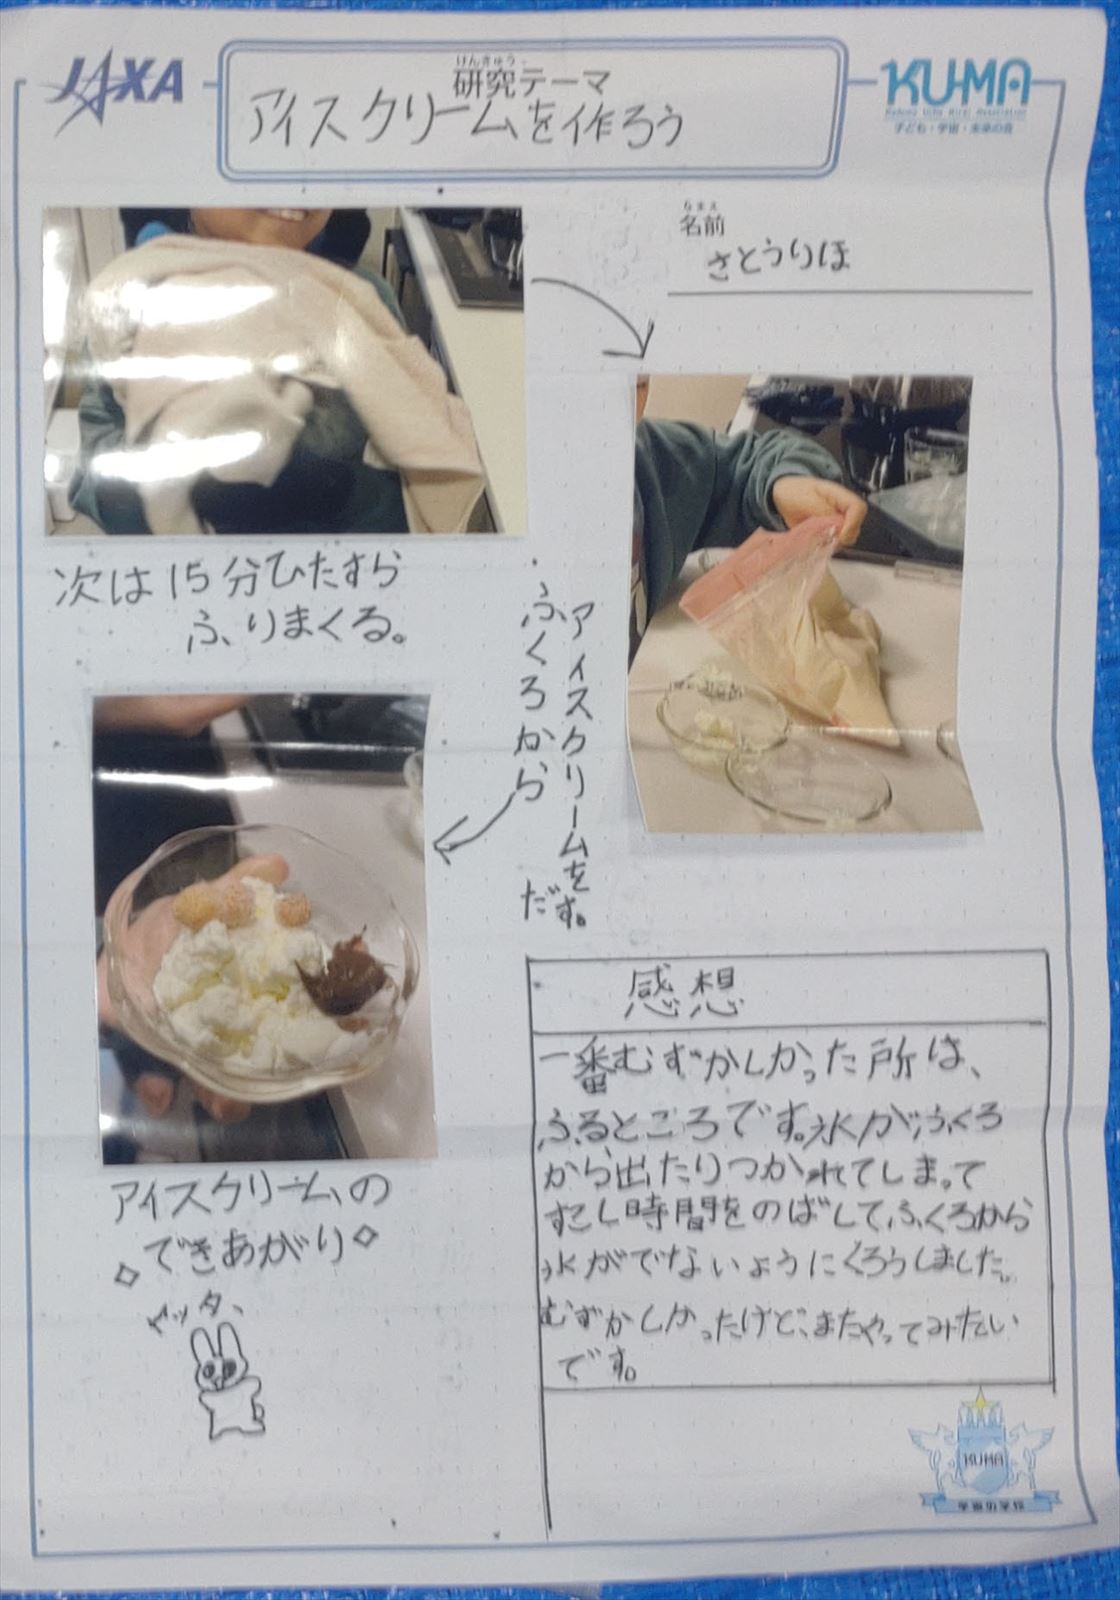 JAXA
けんきゅう
研究テーマ
アイスクリームを作ろう
KU-MA
子ども・宇宙・未来の会
なまえ
名前
さとうりほ
次は15分ひたすら
ふりまくる。
アイスクリームを
ふくろから
だす。
アイスクリームの
できあがり
ヤッタ、
感想
一番むずかしかった所は、
ふるところです。氷がふくろ
から出たりつかれてしまって
すこし時間をのばしてふくろから
氷がでないようにくろうしました。
むずかしかったけど、またやってみたい
です。
KUMA